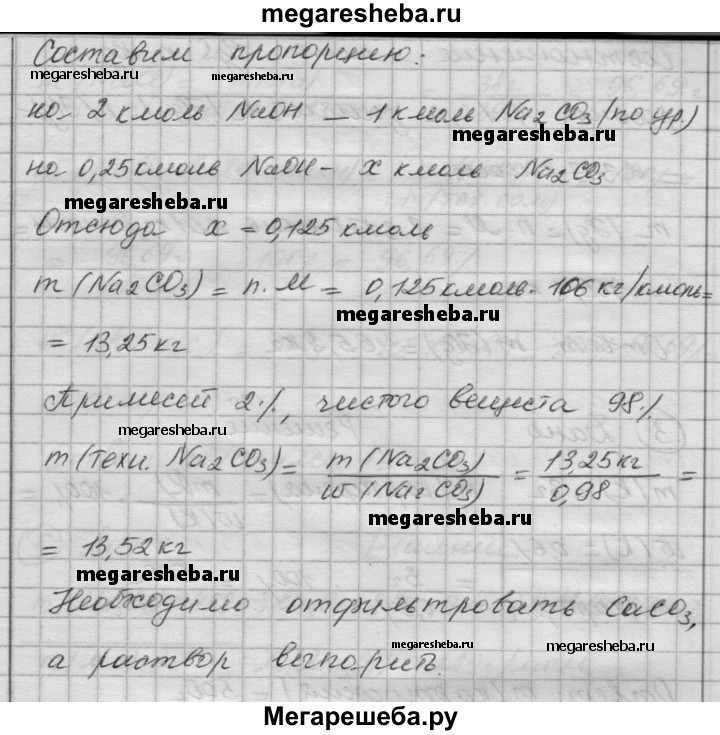 megaresheba.ru
Составим пропорцию:
megaresheba.ru megaresheba.ru
на 2 кмоль NaOH – 1 кмоль Na2CO3 (по ур.)
megaresheba.ru
на 0,25 кмоль NaOH – x кмоль Na2CO3
megaresheba.ru
Отсюда x = 0,125 кмоль
m (Na2CO3) = n · M = 0,125 кмоль · 106 кг/кмоль =
megaresheba.ru
= 13,25 кг
Примесей 2%, чистого вещества 98%
megaresheba.ru
m (техн. Na2CO3) = m (Na2CO3) / w (Na2CO3) = 13,25 кг / 0,98 =
megaresheba.ru
= 13,52 кг
megaresheba.ru
Необходимо отфильтровать CaCO3,
megaresheba.ru
а раствор выпарить.
megaresheba.ru
Мегарешеба.ру